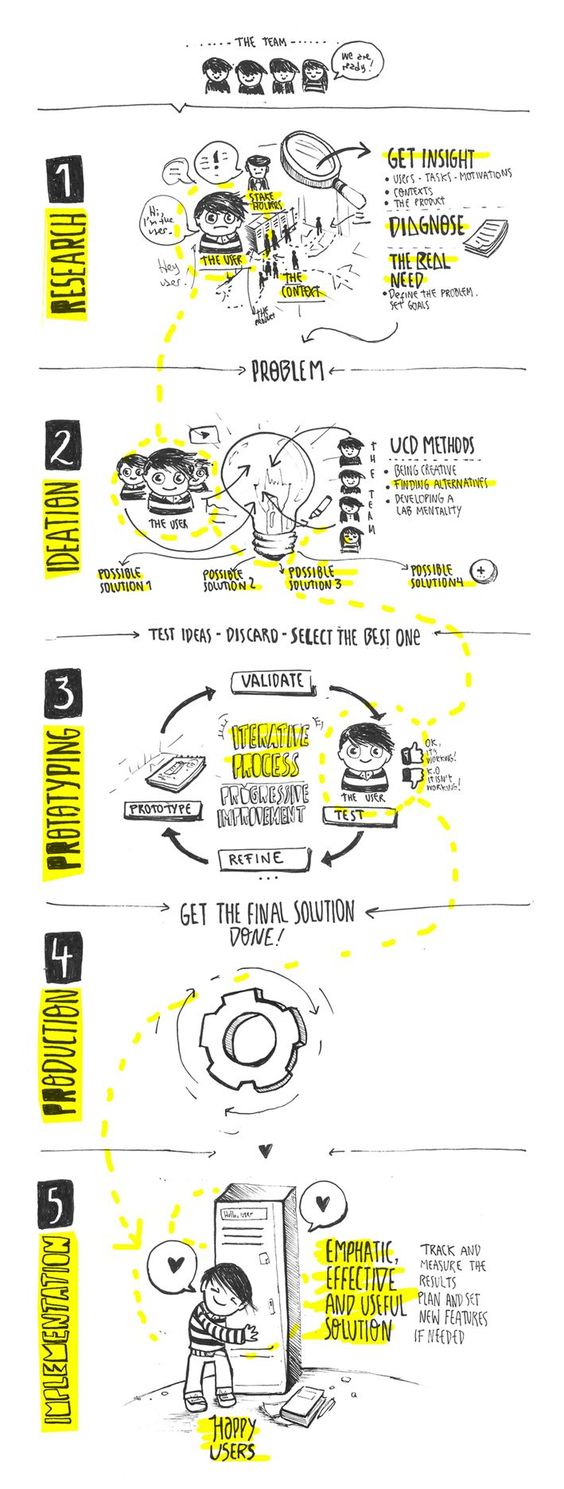 THE TEAM
We are
ready!
1
RESEARCH
!
Hi
I'm the
user.
Hey
user.
STAKE
HOLDERS
THE USER
THE
CONTEXT
the
product
GET INSIGHT
• USERS - TASKS - MOTIVATIONS
• CONTEXTS
• THE PRODUCT
DIAGNOSE
THE REAL
NEED
• DEFINE THE PROBLEM.
SET GOALS
PROBLEM
2
IDEATION
THE USER
THE TEAM
UCD METHODS
• BEING CREATIVE
• FINDING ALTERNATIVES
• DEVELOPING A
LAB MENTALITY
POSSIBLE
SOLUTION 1
POSSIBLE
SOLUTION 2
POSSIBLE
SOLUTION 3
POSSIBLE
SOLUTION 4
+
TEST IDEAS - DISCARD - SELECT THE BEST ONE
3
PROTOTYPING
VALIDATE
ITERATIVE
PROCESS
PROGRESSIVE
IMPROVEMENT
PROTOTYPE
THE USER
TEST
OK,
IT'S
WORKING!
K.O
IT ISN'T
WORKING!
REFINE
...
GET THE FINAL SOLUTION
DONE!
4
PRODUCTION
5
IMPLEMENTATION
Hello, user
EMPHATIC,
EFFECTIVE
AND USEFUL
SOLUTION
TRACK AND
MEASURE THE
RESULTS
PLAN AND SET
NEW FEATURES
IF NEEDED
HAPPY
USERS